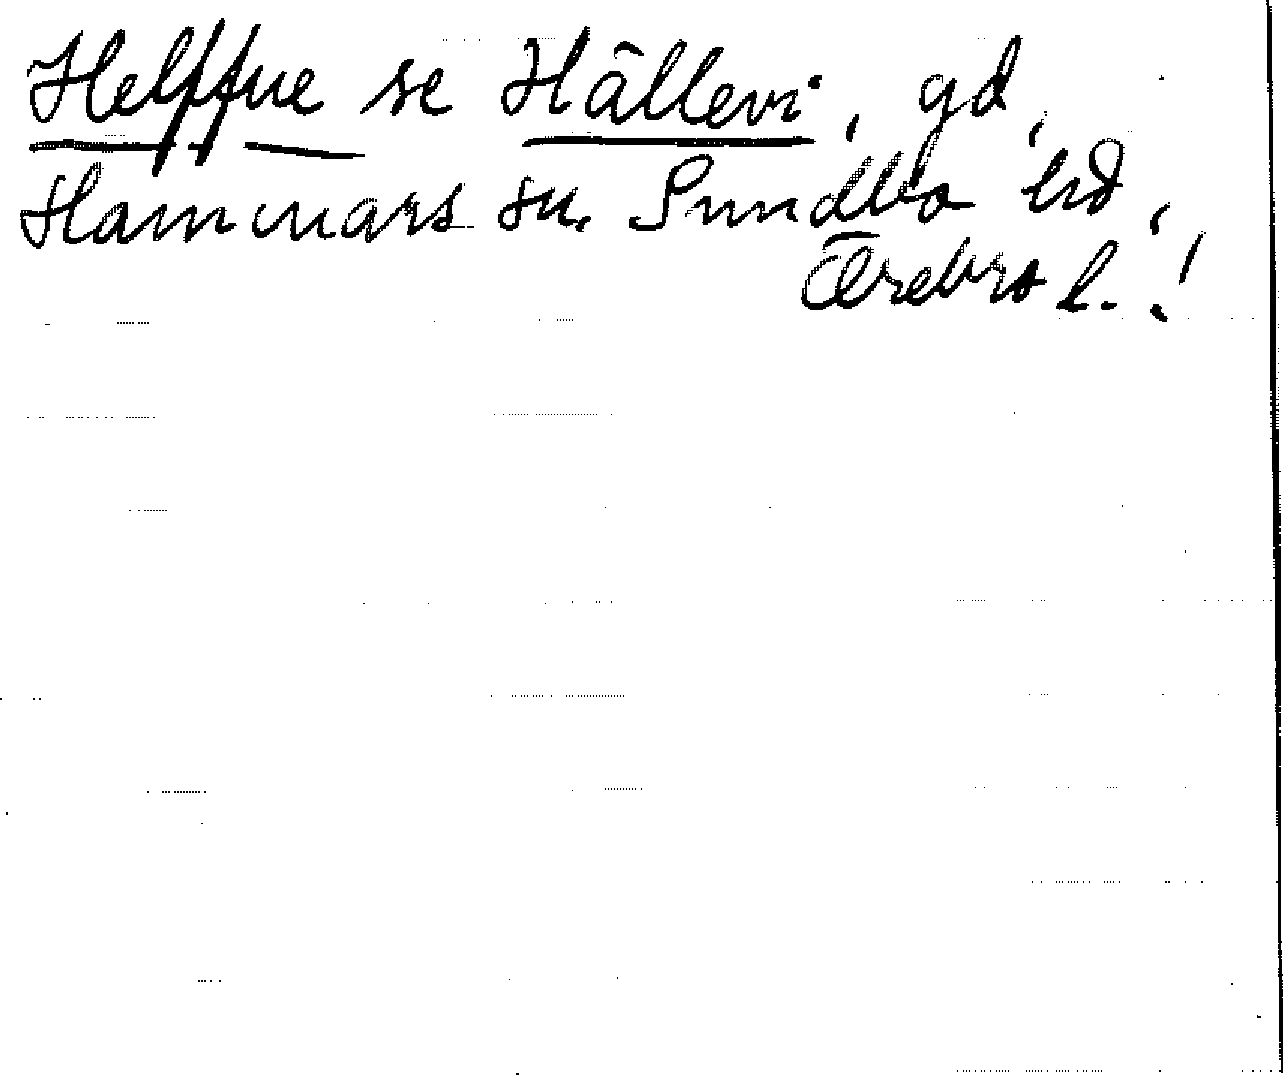 Helffue se Hällevi, gd,
Hammars sn. Sundbo hd,
Örebro l.!